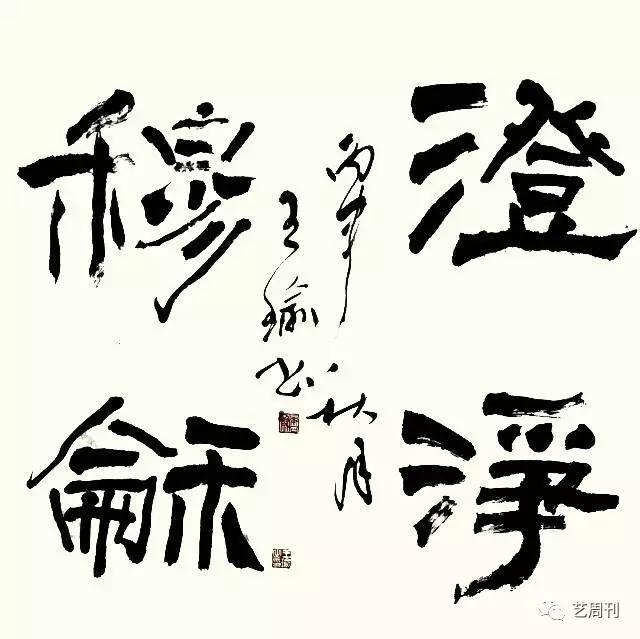 澄淨
穆龢
丙申秋月
王瑜书
艺周刊